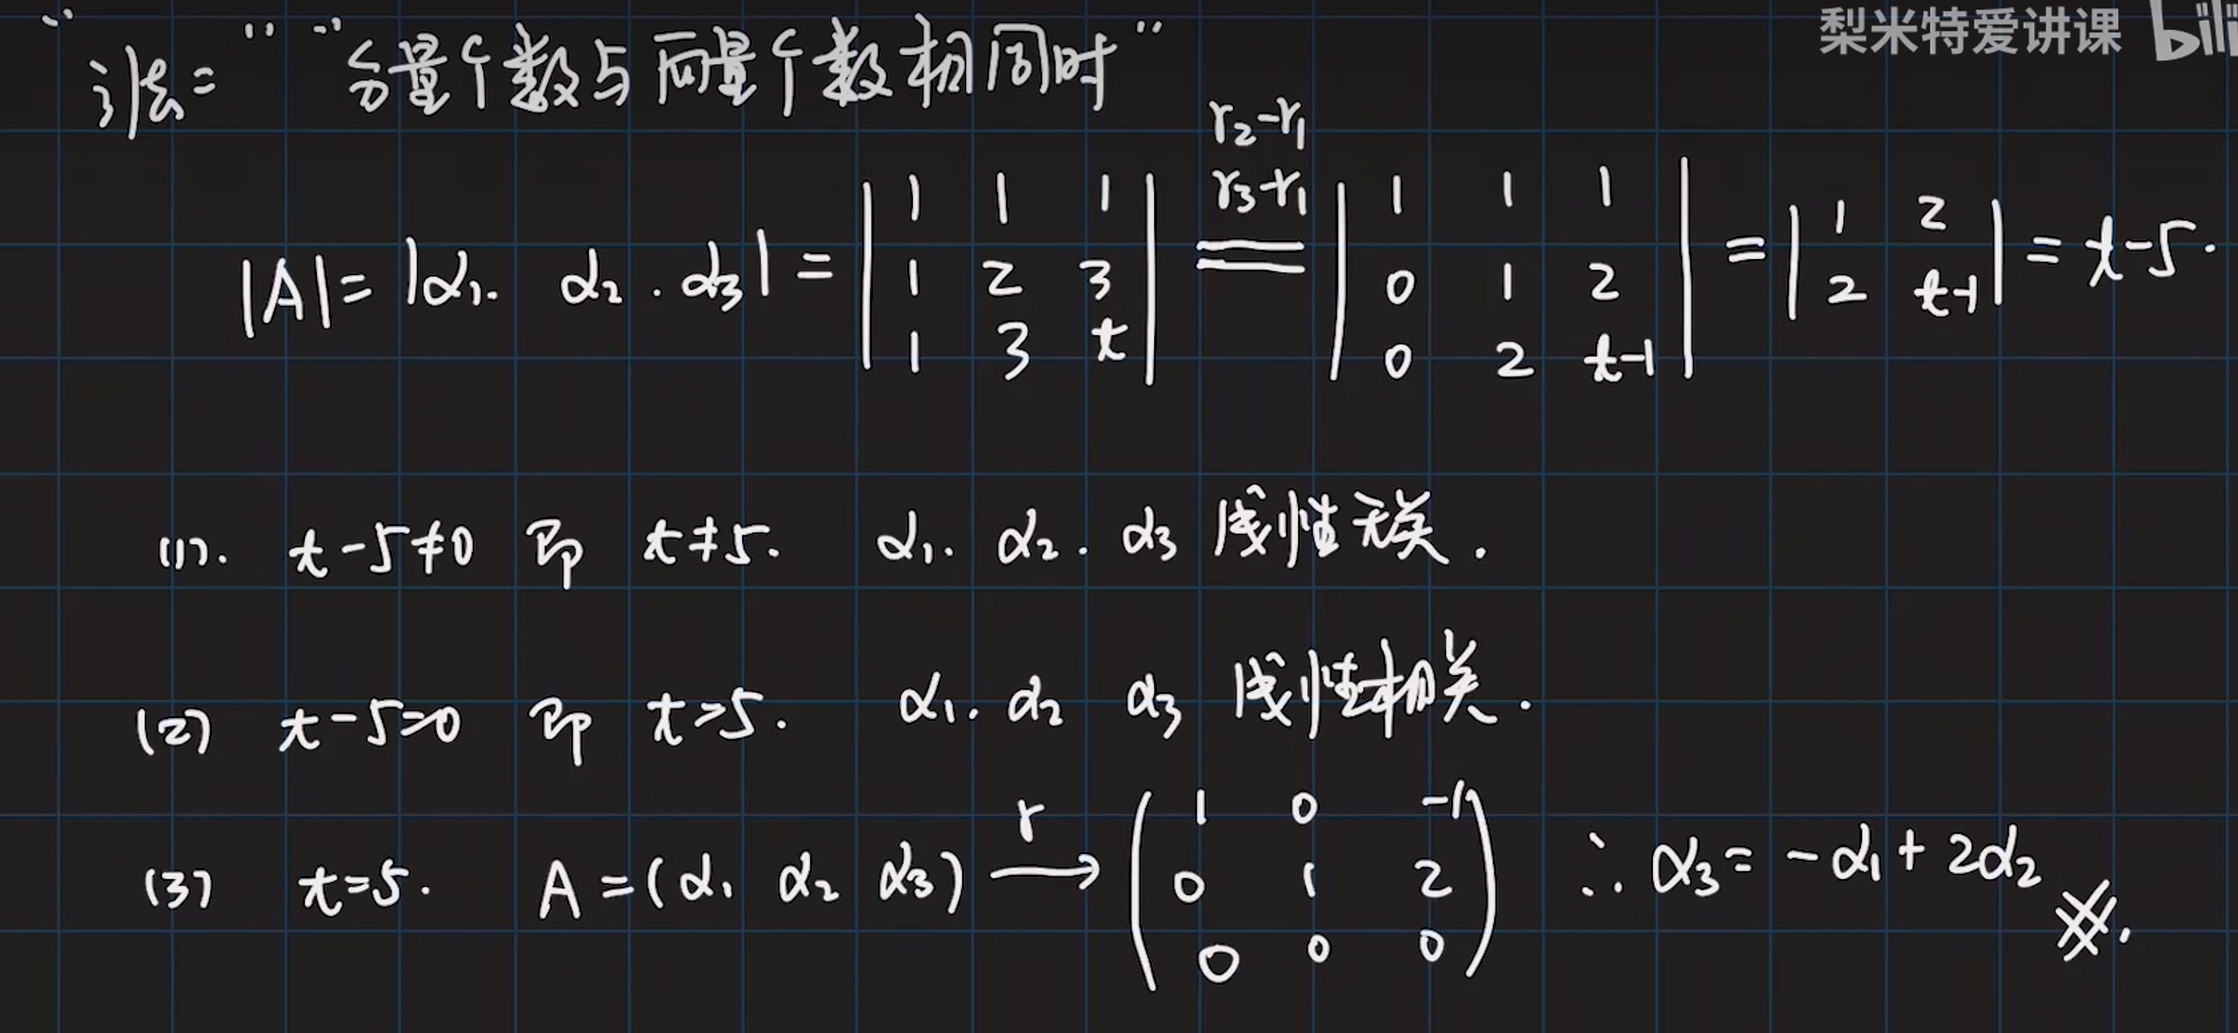 梨米特爱讲课 bili
"法二" "分量个数与向量个数相同时"
|A| = |α₁. α₂. α₃| = | 1 1 1 ; 1 2 3 ; 1 3 t | r₂-r₁ r₃-r₁ = | 1 1 1 ; 0 1 2 ; 0 2 t-1 | = | 1 2 ; 2 t-1 | = t-5.
(1). t-5≠0 即 t≠5. α₁. α₂. α₃ 线性无关.
(2) t-5=0 即 t=5. α₁. α₂ α₃ 线性相关.
(3) t=5. A=(α₁ α₂ α₃) r→ ( 1 0 -1 ; 0 1 2 ; 0 0 0 ) ∴ α₃=-α₁+2α₂ #.